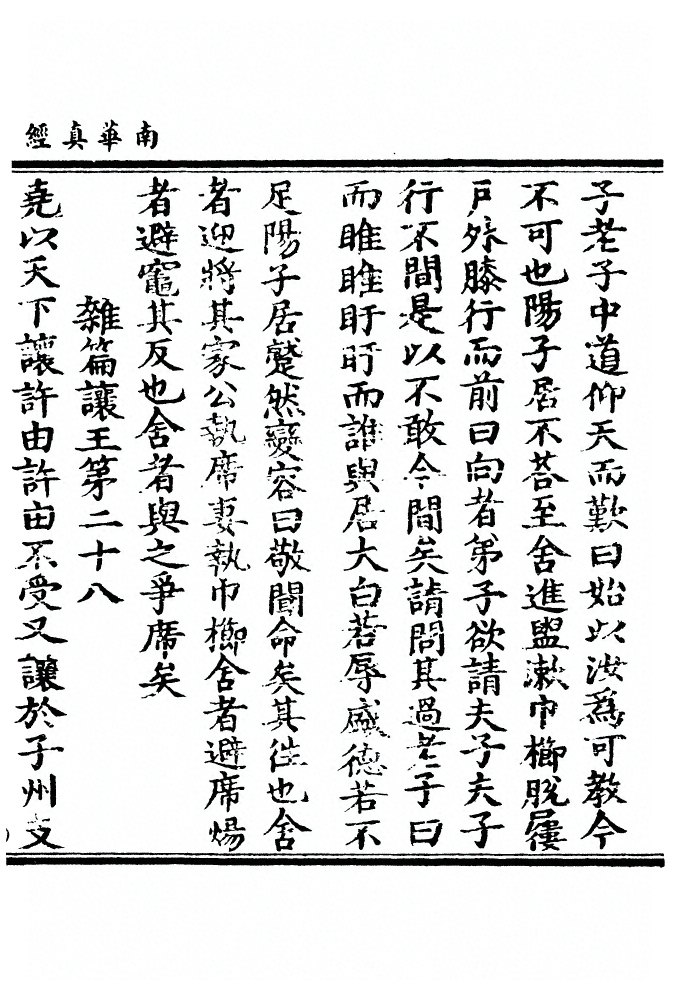 南華真經
子老子中道仰天而歎曰始以汝為可教今
不可也陽子居不荅至舍進盥漱巾櫛脫屨
戶外膝行而前曰向者弟子欲請夫子夫子
行不間是以不敢今間矣請問其過老子曰
而睢睢盱盱而誰與居大白若辱盛德若不
足陽子居蹵然變容曰敬聞命矣其徃也舍
者迎將其家公執席妻執巾櫛舍者避席煬
者避竈其反也舍者與之爭席矣
雜篇讓王第二十八
堯以天下讓許由許由不受又讓於子州支